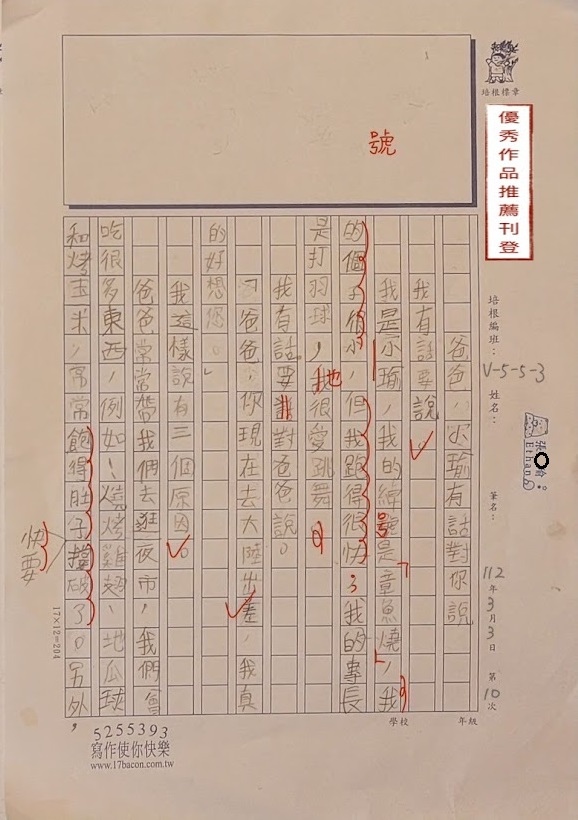 號
培根標章
優秀作品推薦刊登
培根編班：V-5-5-3
姓名：
張
Ethan
筆名：
112年3月3日 第10次
年級
學校
爸爸，亦瑜有話對你說
我有話要說
我是亦瑜，我的綽號是章魚燒，我
的個子很小，但我跑得很快，我的專長
是打羽球，我也很愛跳舞。
我有話要對爸爸說。
「爸爸，你現在去大陸出差，我真
的好想您。」
我這樣說有三個原因。
爸爸常常帶我們去逛夜市，我們會
吃很多東西，例如：燒烤雞翅、地瓜球
和烤玉米，常常飽得肚子撐破了。另外，
快要
17×12=204
5255393
寫作使你快樂
www.17bacon.com.tw